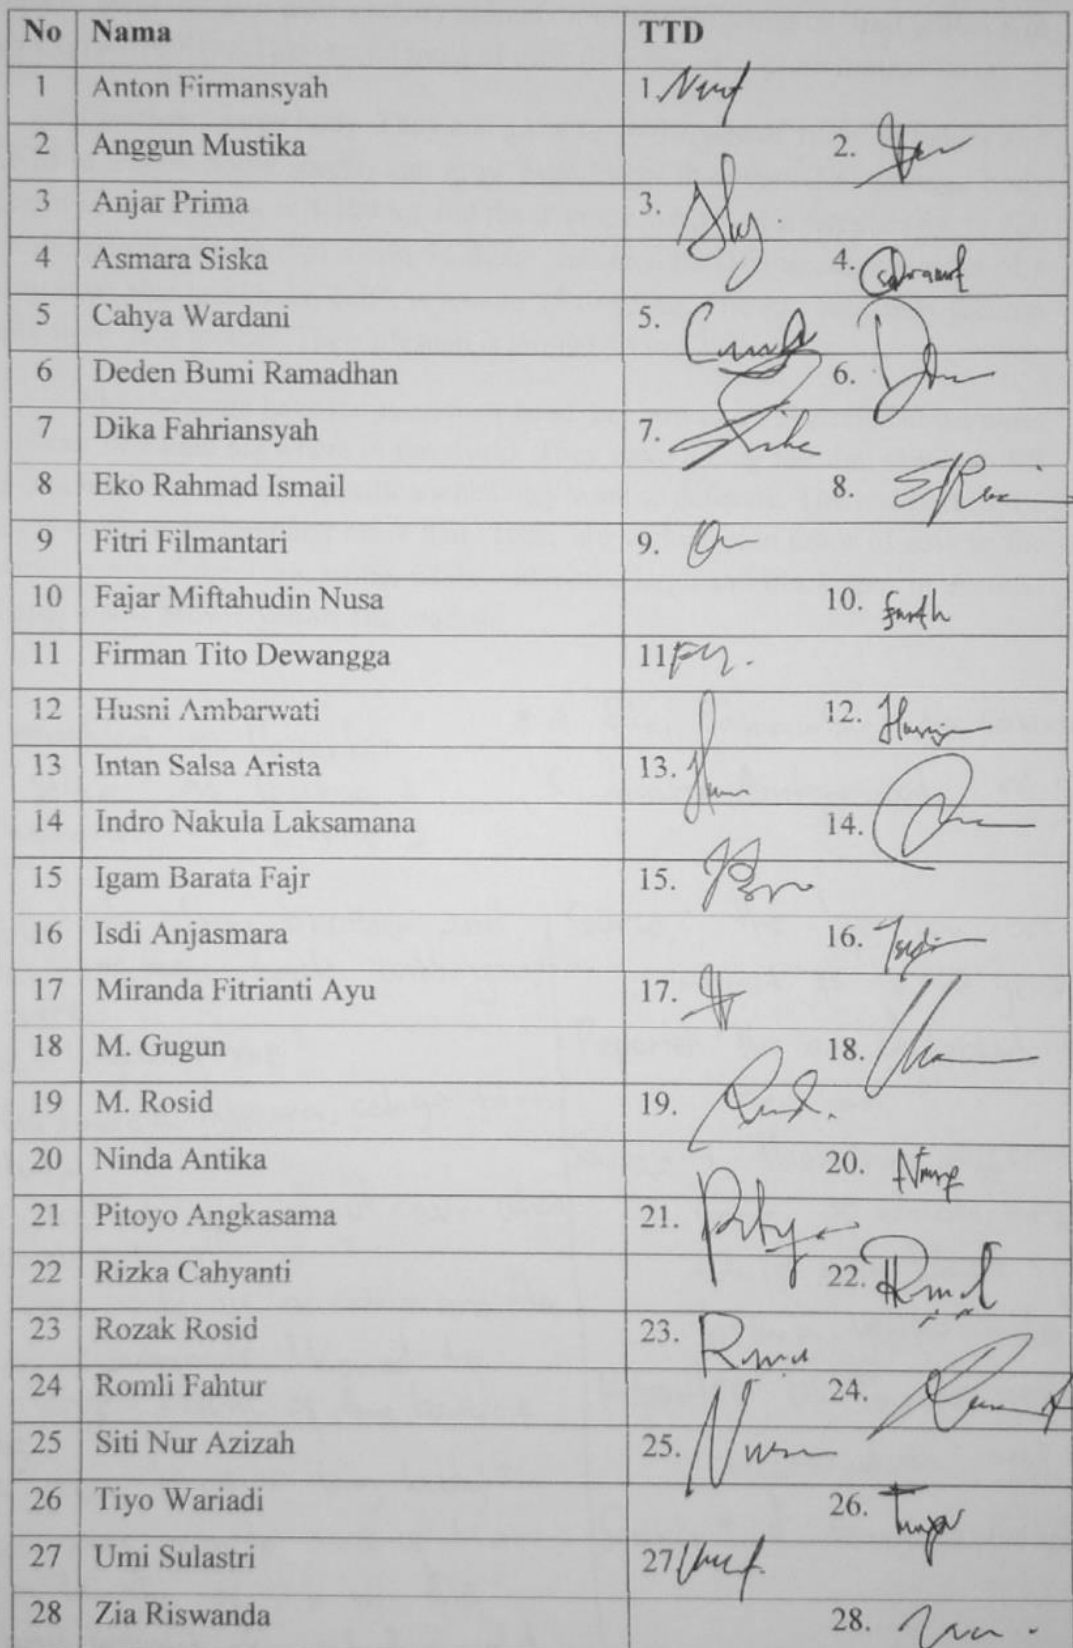 No Nama TTD
1 Anton Firmansyah 1.
2 Anggun Mustika 2.
3 Anjar Prima 3.
4 Asmara Siska 4.
5 Cahya Wardani 5.
6 Deden Bumi Ramadhan 6.
7 Dika Fahriansyah 7.
8 Eko Rahmad Ismail 8.
9 Fitri Filmantari 9.
10 Fajar Miftahudin Nusa 10.
11 Firman Tito Dewangga 11
12 Husni Ambarwati 12.
13 Intan Salsa Arista 13.
14 Indro Nakula Laksamana 14.
15 Igam Barata Fajr 15.
16 Isdi Anjasmara 16.
17 Miranda Fitrianti Ayu 17.
18 M. Gugun 18.
19 M. Rosid 19.
20 Ninda Antika 20.
21 Pitoyo Angkasama 21.
22 Rizka Cahyanti 22.
23 Rozak Rosid 23.
24 Romli Fahtur 24.
25 Siti Nur Azizah 25.
26 Tiyo Wariadi 26.
27 Umi Sulastri 27
28 Zia Riswanda 28.